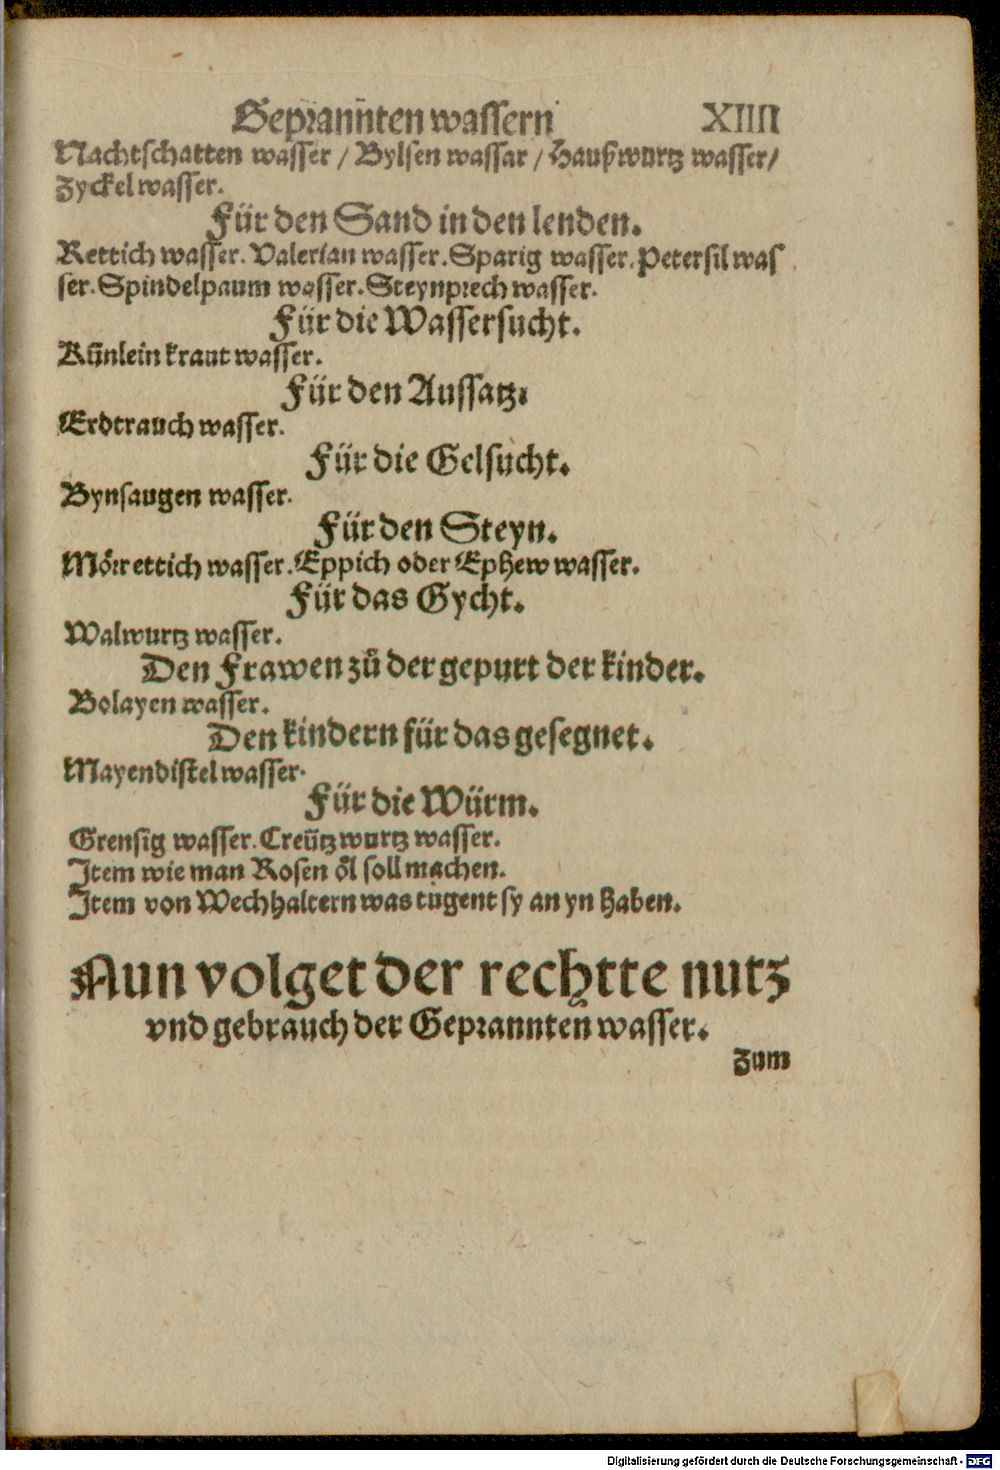 Geprannten wassern XIIII
Nachtschatten wasser / Bylsen wassar / Haußwurtz wasser /
Zyckel wasser.
Für den Sand in den lenden.
Rettich wasser. Valerian wasser. Sparig wasser. Petersil was
ser. Spindelpaum wasser. Steynprech wasser.
Für die Wassersucht.
Künlein kraut wasser.
Für den Aussatz.
Erdtrauch wasser.
Für die Gelsucht.
Bynsaugen wasser.
Für den Steyn.
Mörrettich wasser. Eppich oder Ephew wasser.
Für das Gycht.
Walwurtz wasser.
Den Frawen zů der gepurt der kinder.
Bolayen wasser.
Den kindern für das gesegnet.
Mayendistel wasser.
Für die Würm.
Grensig wasser. Creütz wurtz wasser.
Item wie man Rosen öl soll machen.
Item von Wechhaltern was tugent sy an yn haben.
Nun volget der rechtte nutz
vnd gebrauch der Geprannten wasser.
Zum
Digitalisierung gefördert durch die Deutsche Forschungsgemeinschaft - DFG